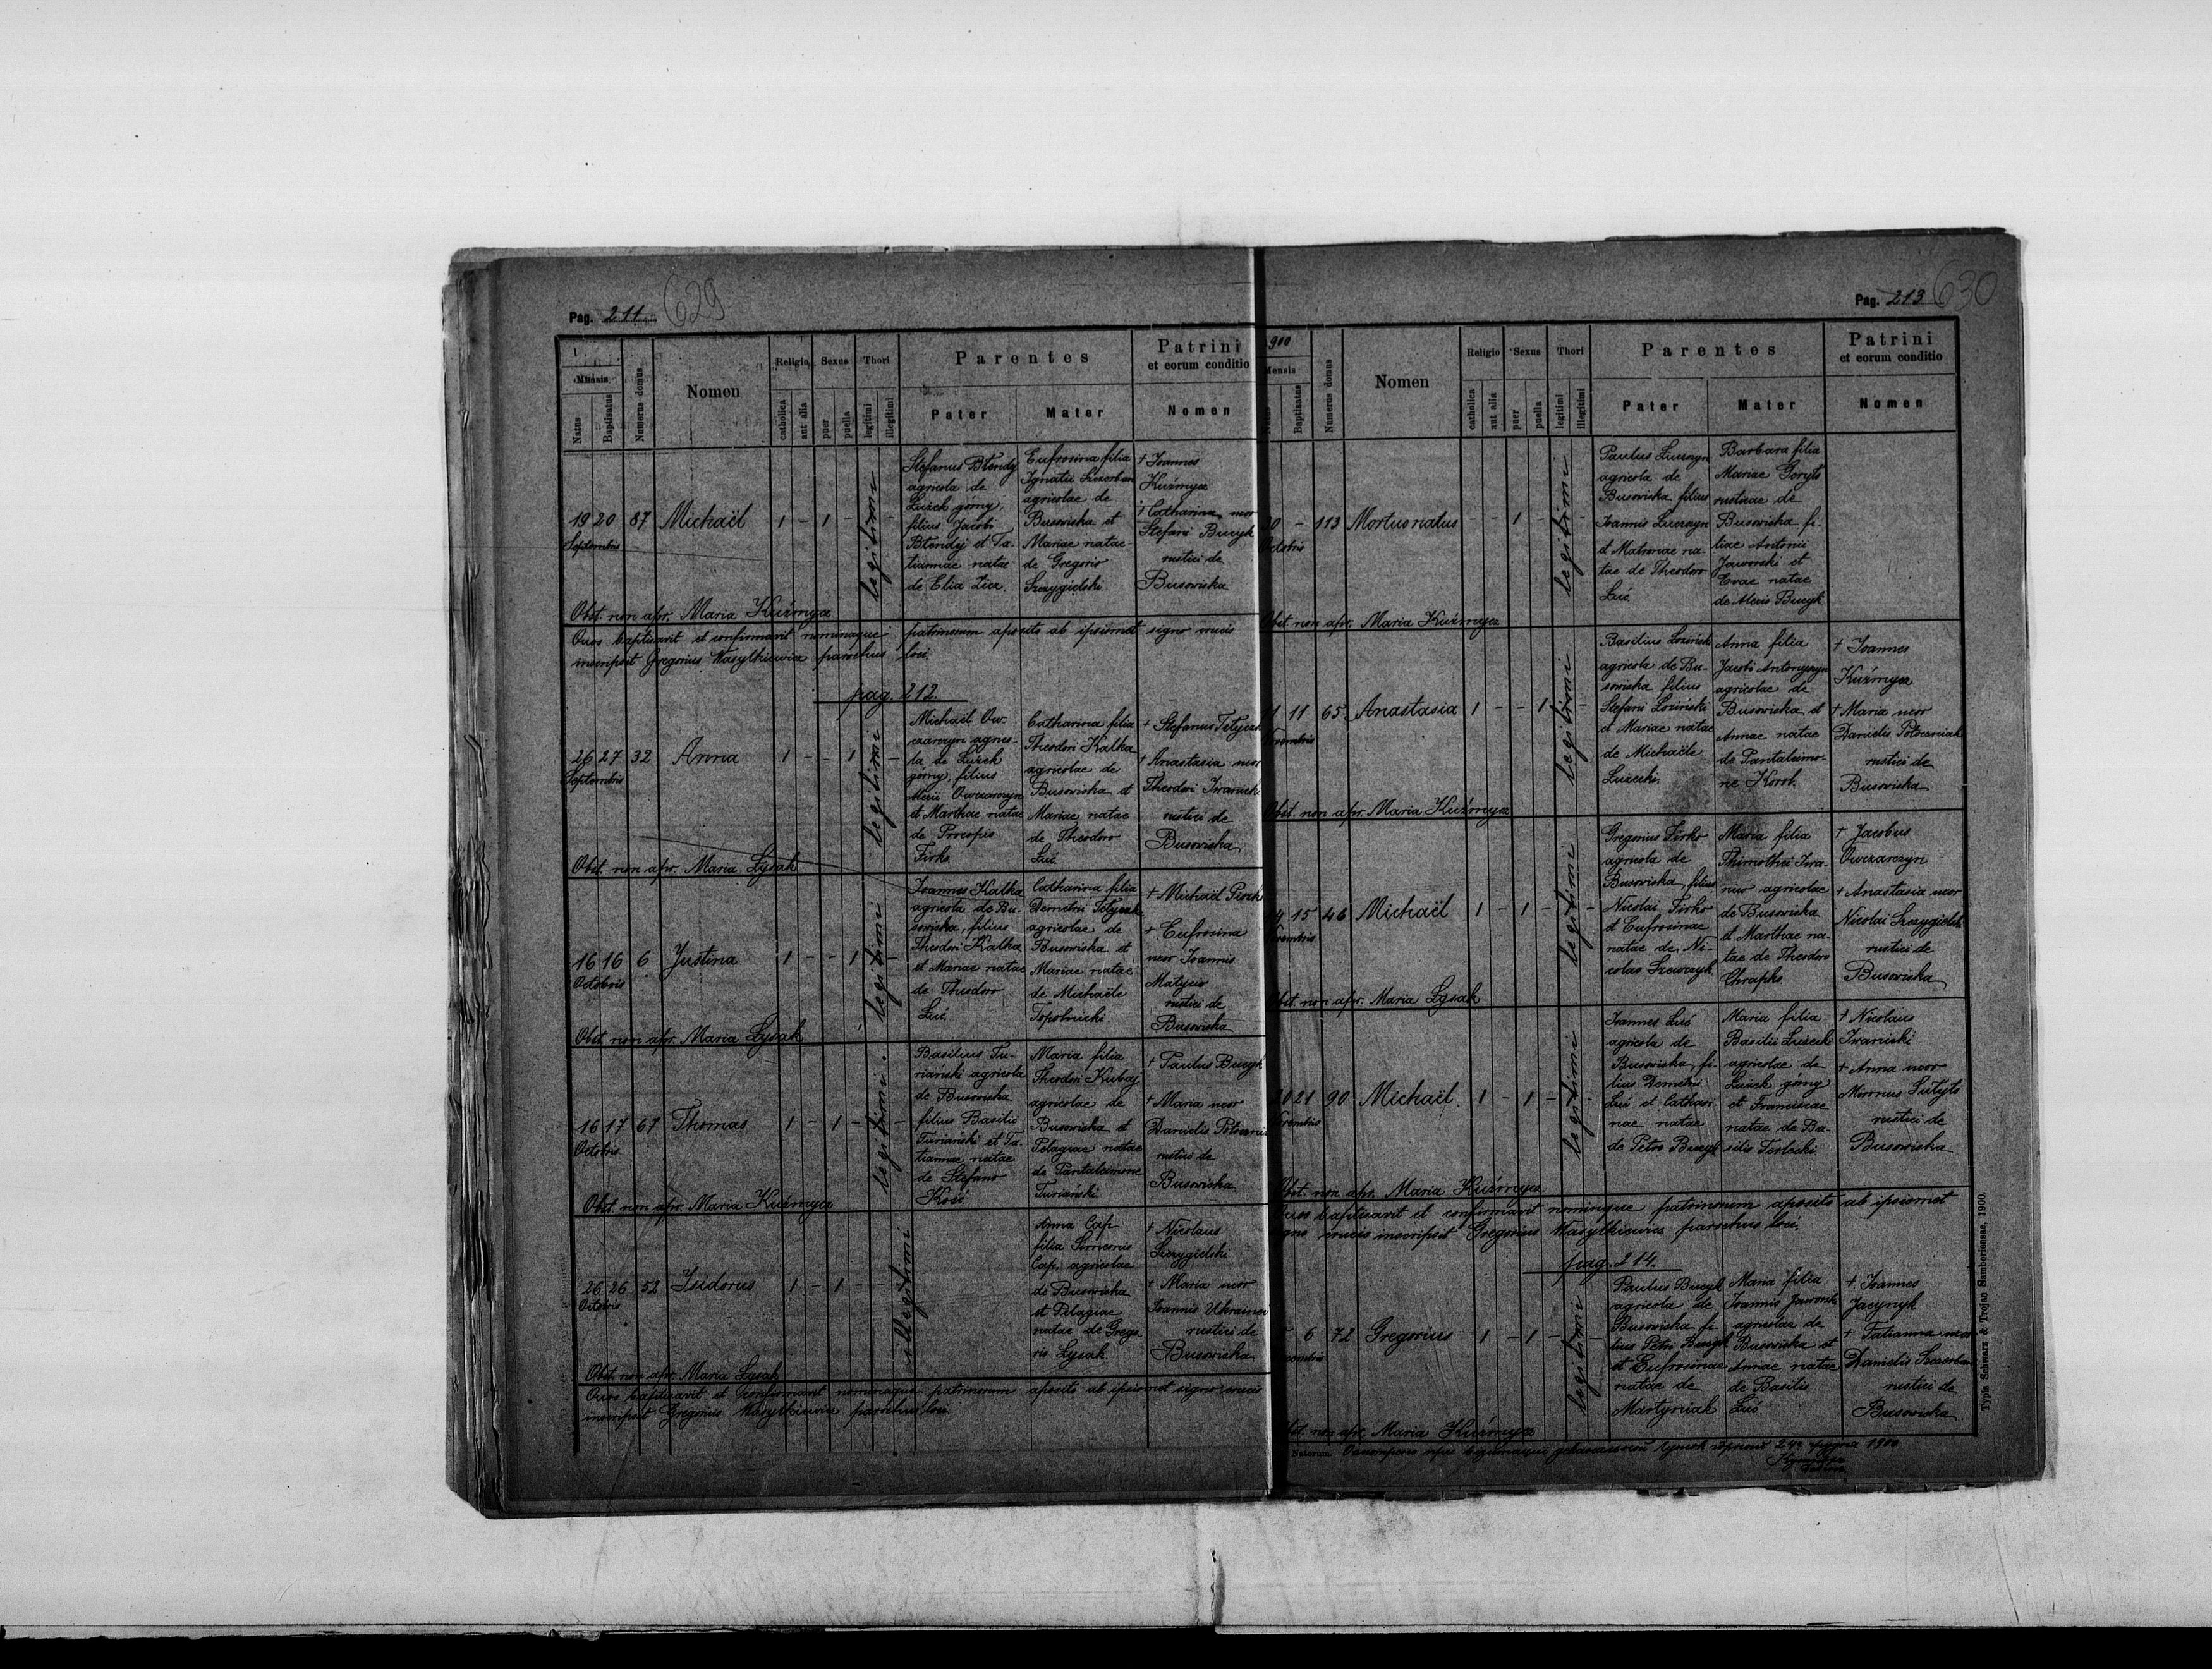 Pag. 211
629
1
Mensis
Natus
Baptisatus
Numerus domus
Nomen
Religio
catholica
aut alia
Sexus
puer
puella
Thori
legitimi
illegitimi
Parentes
Pater
Mater
Patrini
et eorum conditio
Nomen
19 20 87 Michaël 1 - 1 -
Septembris
legitimi
Stefanus
agricola de
Łużek górny,
filius Jacobi
et Ta-
tiannae natae
de Elia
Eufrosina filia
Ignatii Szczerban
agricolae de
Busowiska et
Mariae natae
de Gregorio
Szczygielski
+ Joannes
Kuźmycz
+ Catharina uxor
Stefani Bucyk
rustici de
Busowiska
Obst. non apr. Maria Kuźmycz
Quos baptisavit et confirmavit nominaque patrinorum aposito ab ipsismet signo crucis
inscripsit Gregorius Wasylkiewicz parochus loci.
pag. 212.
26 27 32 Anna 1 - - 1
Septembris
legitimi
Michaël Ow-
czarczyn agrico-
la de Łużek
górny, filius
Alexii Owczarczyn
et Marthae natae
de Procopio
Firko
Catharina filia
Theodori Kalka
agricolae de
Busowiska et
Mariae natae
de Theodoro
Łuć
+ Stefanus Tetyczak
+ Anastasia uxor
Theodori Iwanicki
rustici de
Busowiska
Obst. non apr. Maria Łysak
16 16 6 Justina 1 - - 1 -
Octobris
legitimi
Joannes Kalka
agricola de Bu-
sowiska, filius
Theodori Kalka
et Mariae natae
de Theodoro
Łuć
Catharina filia
Demetrii Tetyczak
agricolae de
Busowiska et
Mariae natae
de Michaële
Topolnicki
+ Michaël
+ Eufrosina
uxor Joannis
Matyciο
rustici de
Busowiska
Obst. non apr. Maria Łysak
16 17 67 Thomas 1 - 1 -
Octobris
legitimi
Basilius Tu-
riański agricola
de Busowiska
filius Basilii
Turiański et Ta-
tiannae natae
de Stefano
Kość
Maria filia
Theodori Kubaj
agricolae de
Busowiska et
Pelagiae natae
de Pantaleimone
Turiański
+ Paulus Bucyk
+ Maria uxor
Danielis
rustici de
Busowiska
Obst. non apr. Maria Kuźmycz
26 26 52 Isidorus 1 - 1 -
Octobris
illegitimi
Anna Cap
filia Simeonis
Cap agricolae
de Busowiska
et Pelagiae
natae de Grego-
rio Łysak
+ Nicolaus
Szczygielski
+ Maria uxor
Joannis Ukrainec
rustici de
Busowiska
Obst. non apr. Maria Łysak
Quos baptisavit et confirmavit nominaque patrinorum aposito ab ipsismet signo crucis
inscripsit Gregorius Wasylkiewicz parochus loci.
Pag. 213
630
900
Mensis
Baptisatus
Numerus domus
Nomen
Religio
catholica
aut alia
Sexus
puer
puella
Thori
legitimi
illegitimi
Parentes
Pater
Mater
Patrini
et eorum conditio
Nomen
30 - 113 Mortuo natus - - 1
Octobris
legitimi
Paulus Łuczayn
agricola de
Busowiska filius
Joannis Łuczayn
et Matronae na-
tae de Theodoro
Łuć
Barbara filia
Mariae Goryto
rusticae de
Busowiska fi-
liae Antonii
Jaworski et
Evae natae
de Alexio Bucyk
Obst. non apr. Maria Kuźmycz
11 11 65 Anastasia 1 - - 1
legitimi
Basilius Łoziński
agricola de Bu-
sowiska filius
Stefani Łoziński
et Mariae natae
de Michaële
Łużecki
Anna filia
Jacobi Antonyszyn
agricolae de
Busowiska et
Annae natae
de Pantaleimo-
ne Korol
+ Joannes
Kuźmycz
+ Maria uxor
Danielis
rustici de
Busowiska
Obst. non apr. Maria Kuźmycz
15 46 Michaël 1 - 1 -
legitimi
Gregorius Firko
agricola de
Busowiska, filius
Nicolai Firko
et Eufrosinae
natae de Ni-
colao Szewczyk
Maria filia
Thimothei Iwa-
niw agricolae
de Busowiska
et Marthae na-
tae de Theodoro
Chrapko
+ Jacobus
Owczarczyn
+ Anastasia uxor
Nicolai Szczygielski
rustici de
Busowiska
Obst. non apr. Maria Łysak
20 21 90 Michaël 1 - 1 -
legitimi
Joannes Łuć
agricola de
Busowiska, fi-
lius Demetrii
Łuć et Cathari-
nae natae
de Petro Bucyk
Maria filia
Basilii Łużecki
agricolae de
Łużek górny
et Franciscae
natae de Ba-
silio Terlecki
+ Nicolaus
Iwanicki
+ Anna uxor
rustici de
Busowiska
Obst. non apr. Maria Kuźmycz
Quos baptisavit et confirmavit nominaque patrinorum aposito ab ipsismet
signo crucis inscripsit Gregorius Wasylkiewicz parochus loci.
pag. 214.
6 72 Gregorius 1 - 1 -
legitimi
Paulus Bucyk
agricola de
Busowiska fi-
lius Petri Bucyk
et Eufrosinae
natae de
Martyniak
Maria filia
Joannis Jaworski
agricolae de
Busowiska et
Annae natae
de Basilio
Łuć
+ Joannes
Jacynyk
+ Tatianna uxor
Danielis Szczerban
rustici de
Busowiska
Obst. non apr. Maria Kuźmycz
Natorum
1900
Typis Schwarz & Trojan Samboriensae, 1900.